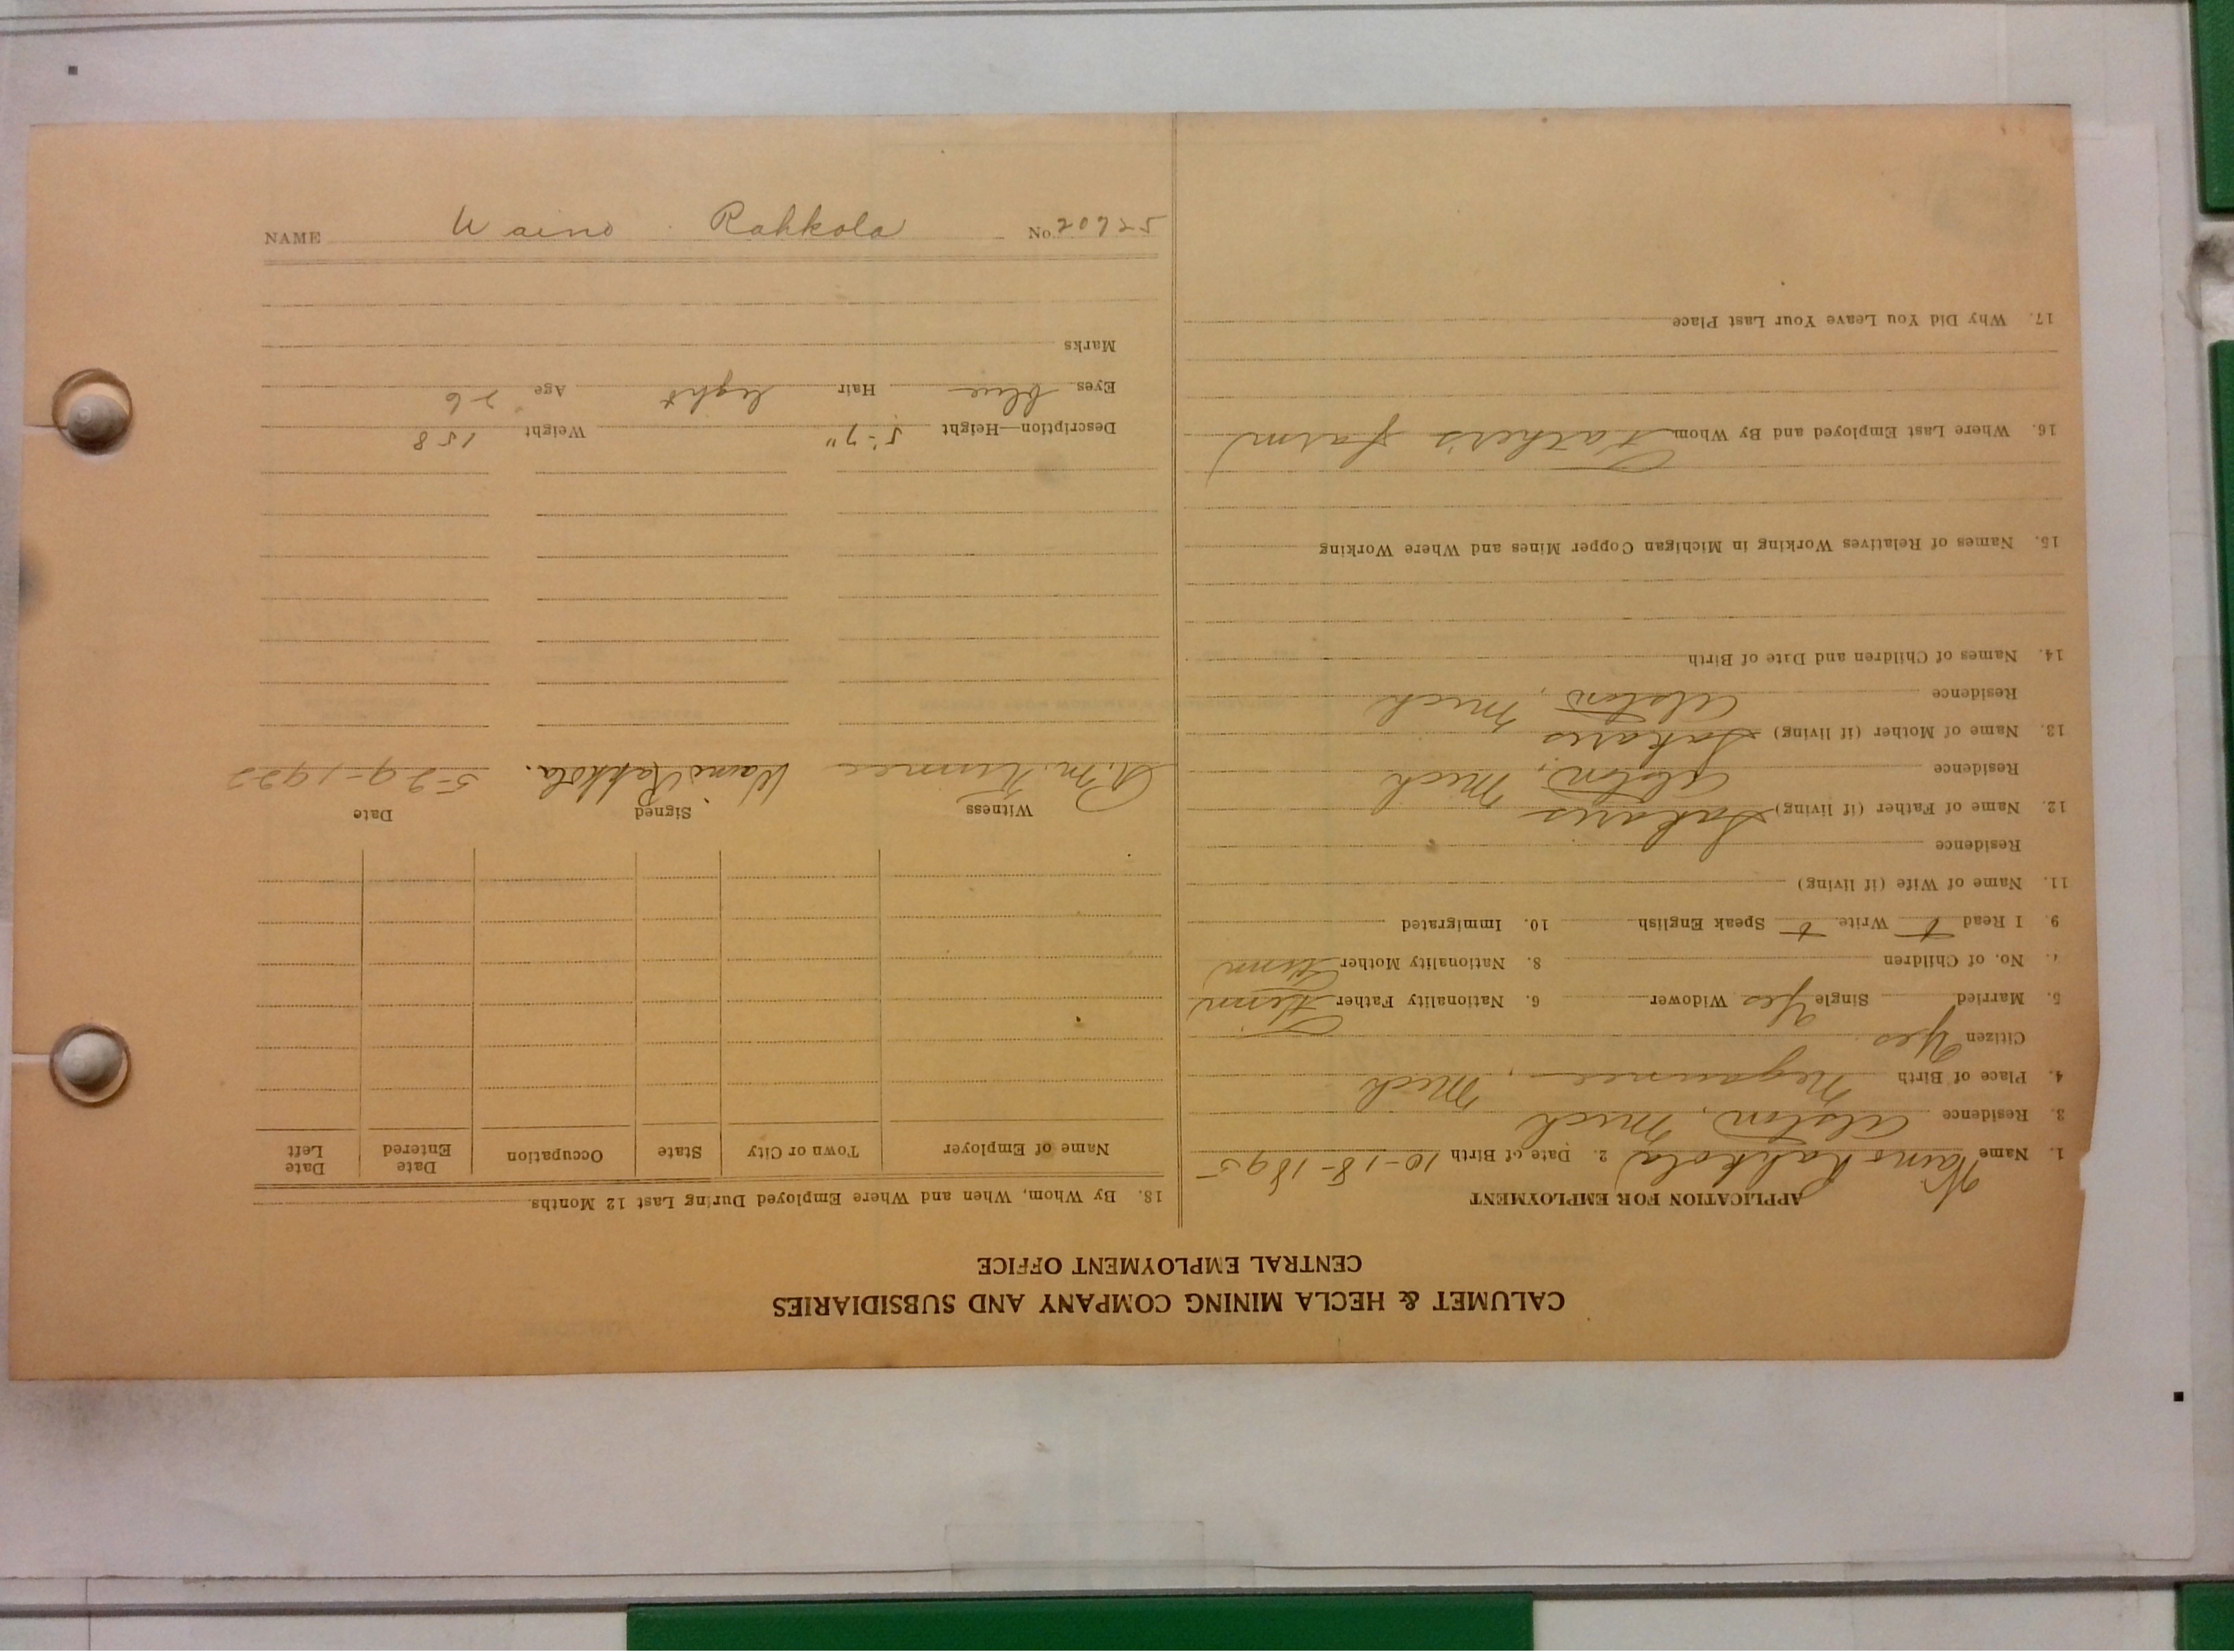 CALUMET & HECLA MINING COMPANY AND SUBSIDIARIES
CENTRAL EMPLOYMENT OFFICE
APPLICATION FOR EMPLOYMENT
1. Name Waino Rahkola 2. Date of Birth 10-18-1895
3. Residence Alston, Mich
4. Place of Birth Negaunee, Mich
Citizen Yes
5. Married Single Yes Widower 6. Nationality Father Finn
No. of Children 8. Nationality Mother Finn
9. I Read Write Speak English 10. Immigrated
11. Name of Wife (if living)
Residence
12. Name of Father (if living) Sakaris
Residence Alston, Mich
13. Name of Mother (if living) Sakaris
Residence Alston, Mich
14. Names of Children and Date of Birth
15. Names of Relatives Working in Michigan Copper Mines and Where Working
16. Where Last Employed and By Whom Father's farm
17. Why Did You Leave Your Last Place
18. By Whom, When and Where Employed During Last 12 Months.
Name of Employer Town or City State Occupation Date Entered Date Left
Witness Signed Date
Waino Rahkola. 5-29-1922
Description—Height 5'-7" Weight 158
Eyes blue Hair light Age 26
Marks
NAME Waino Rahkola No. 20725